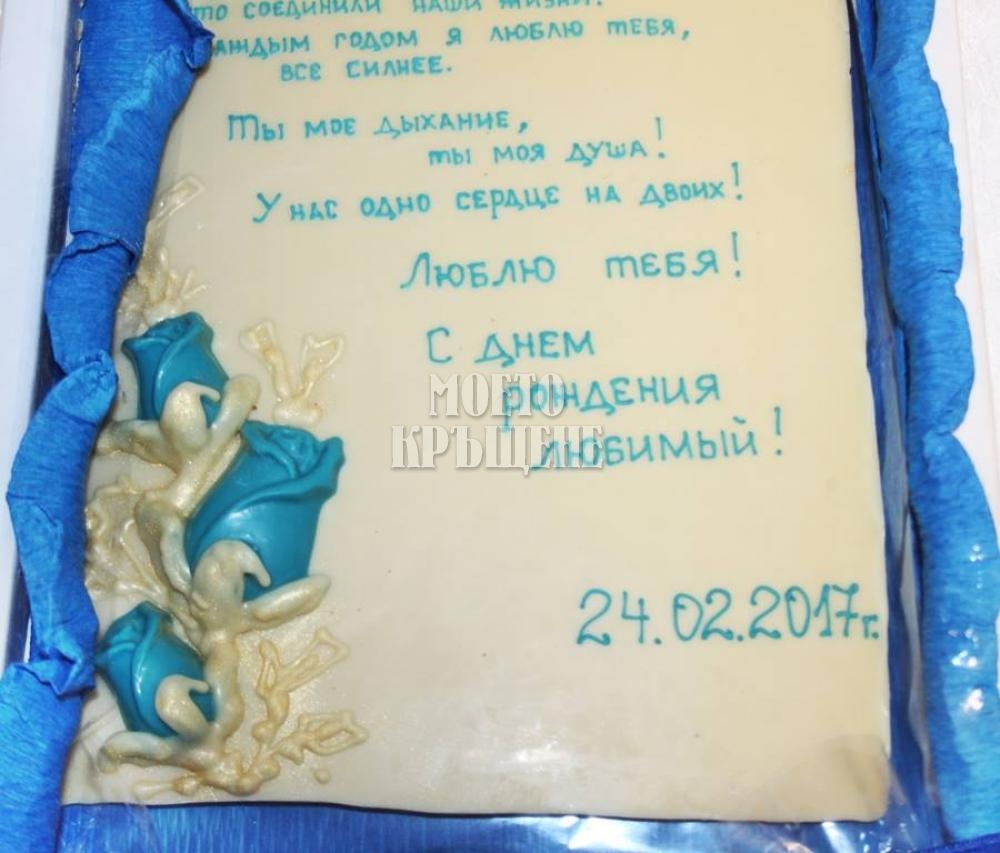 то соединили наши жизни!
аждым годом я люблю тебя,
все силнее.
Ты мое дыхание,
ты моя душа!
У нас одно сердце на двоих!
Люблю тебя!
С днем
рождения
любимый!
МОЕТО
КРЪЩЕНЕ
24.02.2017г.